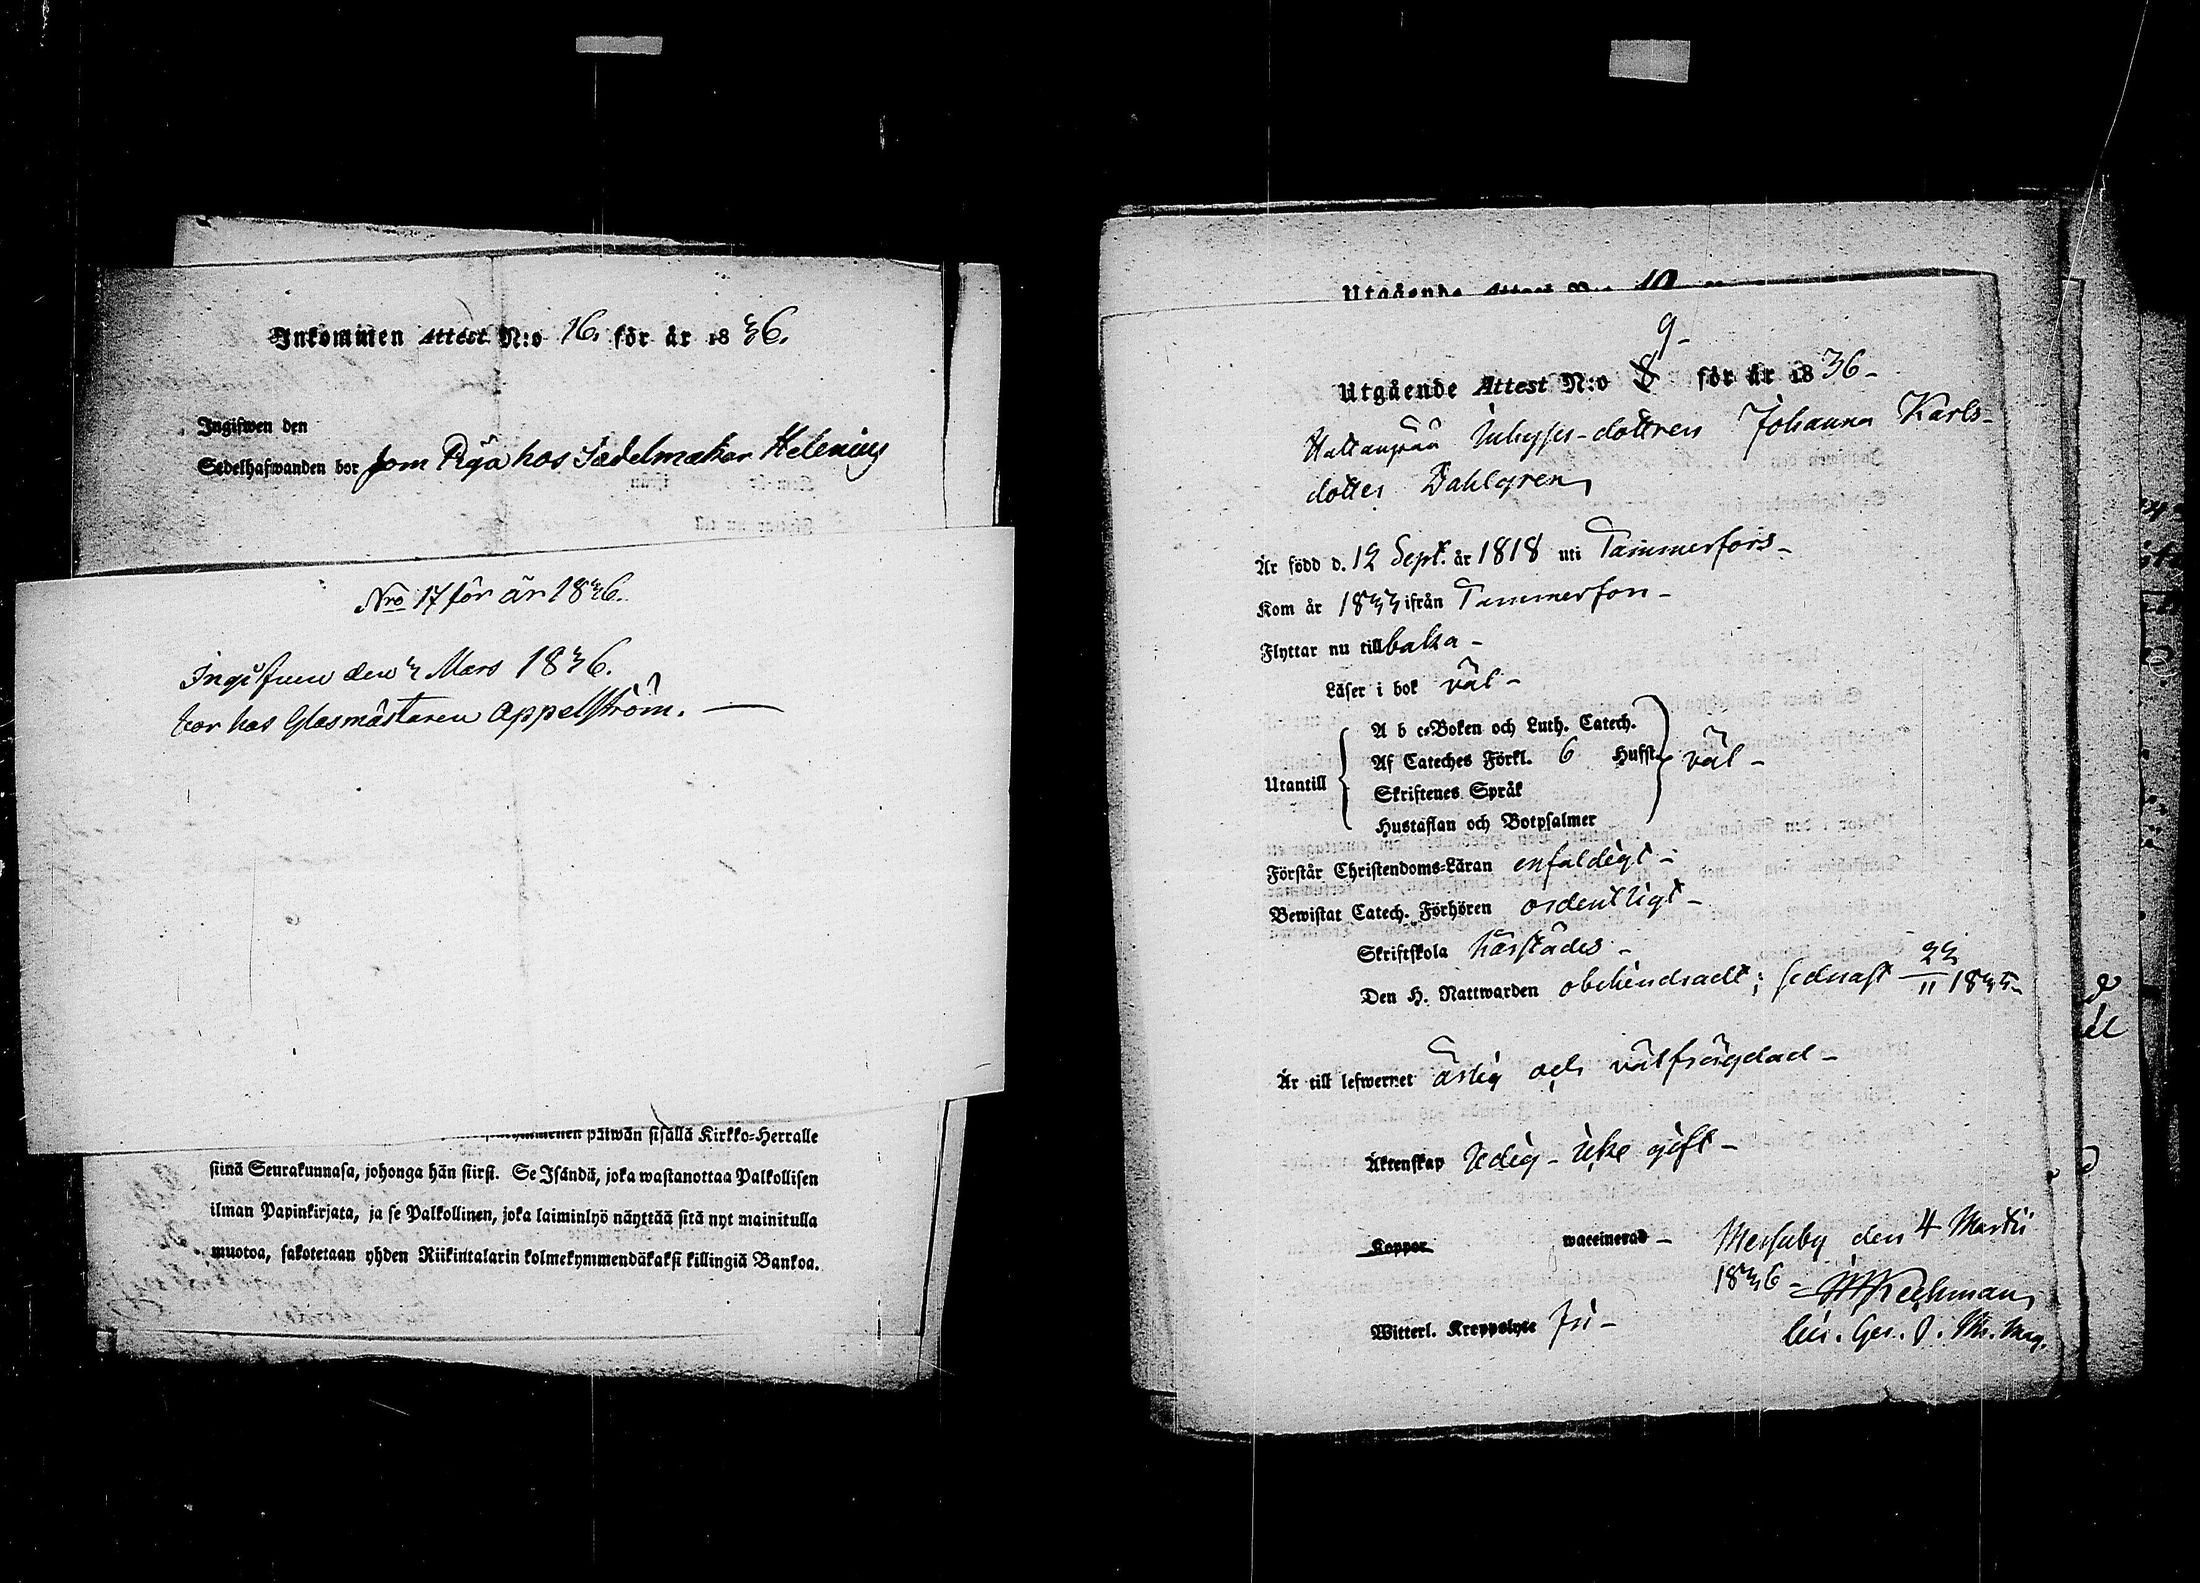 Inkommen Attest N:o 16. för år 1836.
Ingifwen den
Sedelhafwanden bor som Piga hos Sadelmakar Helenius
Nro 17 för år 1836.
Ingifven den 3 Mars 1836.
bor hos Glasmästaren Appelström. —
päiwän sisällä Kirkko-Herralle
siinä Seurakunnasa, johonga hän siirsi. Se Isändä, joka wastanottaa Palkollisen
ilman Papinkirjata, ja se Palkollinen, joka laiminlyö näyttää sitä nyt mainitulla
muotoa, sakotetaan yhden Riikintalarin kolmekymmendäkaksi killingiä Bankoa.
Utgående Attest N:o 10
9-
Utgående Attest N:o 8 för år 1836-
Hattanpää Inhyses-dottren Johanna Karls-
dotter Dahlgren,
Är född d. 12 Sept. år 1818 uti Tammerfors-
Kom år 1833 ifrån Tammerfors-
Flyttar nu tillbaka-
Läser i bok väl-
A b c-Boken och Luth. Catech.
Af Cateches Förkl. 6 Hufst. väl-
Utantill
Skriftenes Språk
Hustaflan och Botpsalmer
Förstår Christendoms-Läran enfaldigt-
Bewistat Catech. Förhören ordentligt-
Skriftskola härstädes-
Den H. Nattwarden obehindradt; sednast 22/11 1835-
Är till lefwernet ärlig och välfrägdad-
Äktenskap ledig-icke gift-
Koppor waccinerad- Messuby den 4 Martii
1836-
Witterl. Kroppslyte